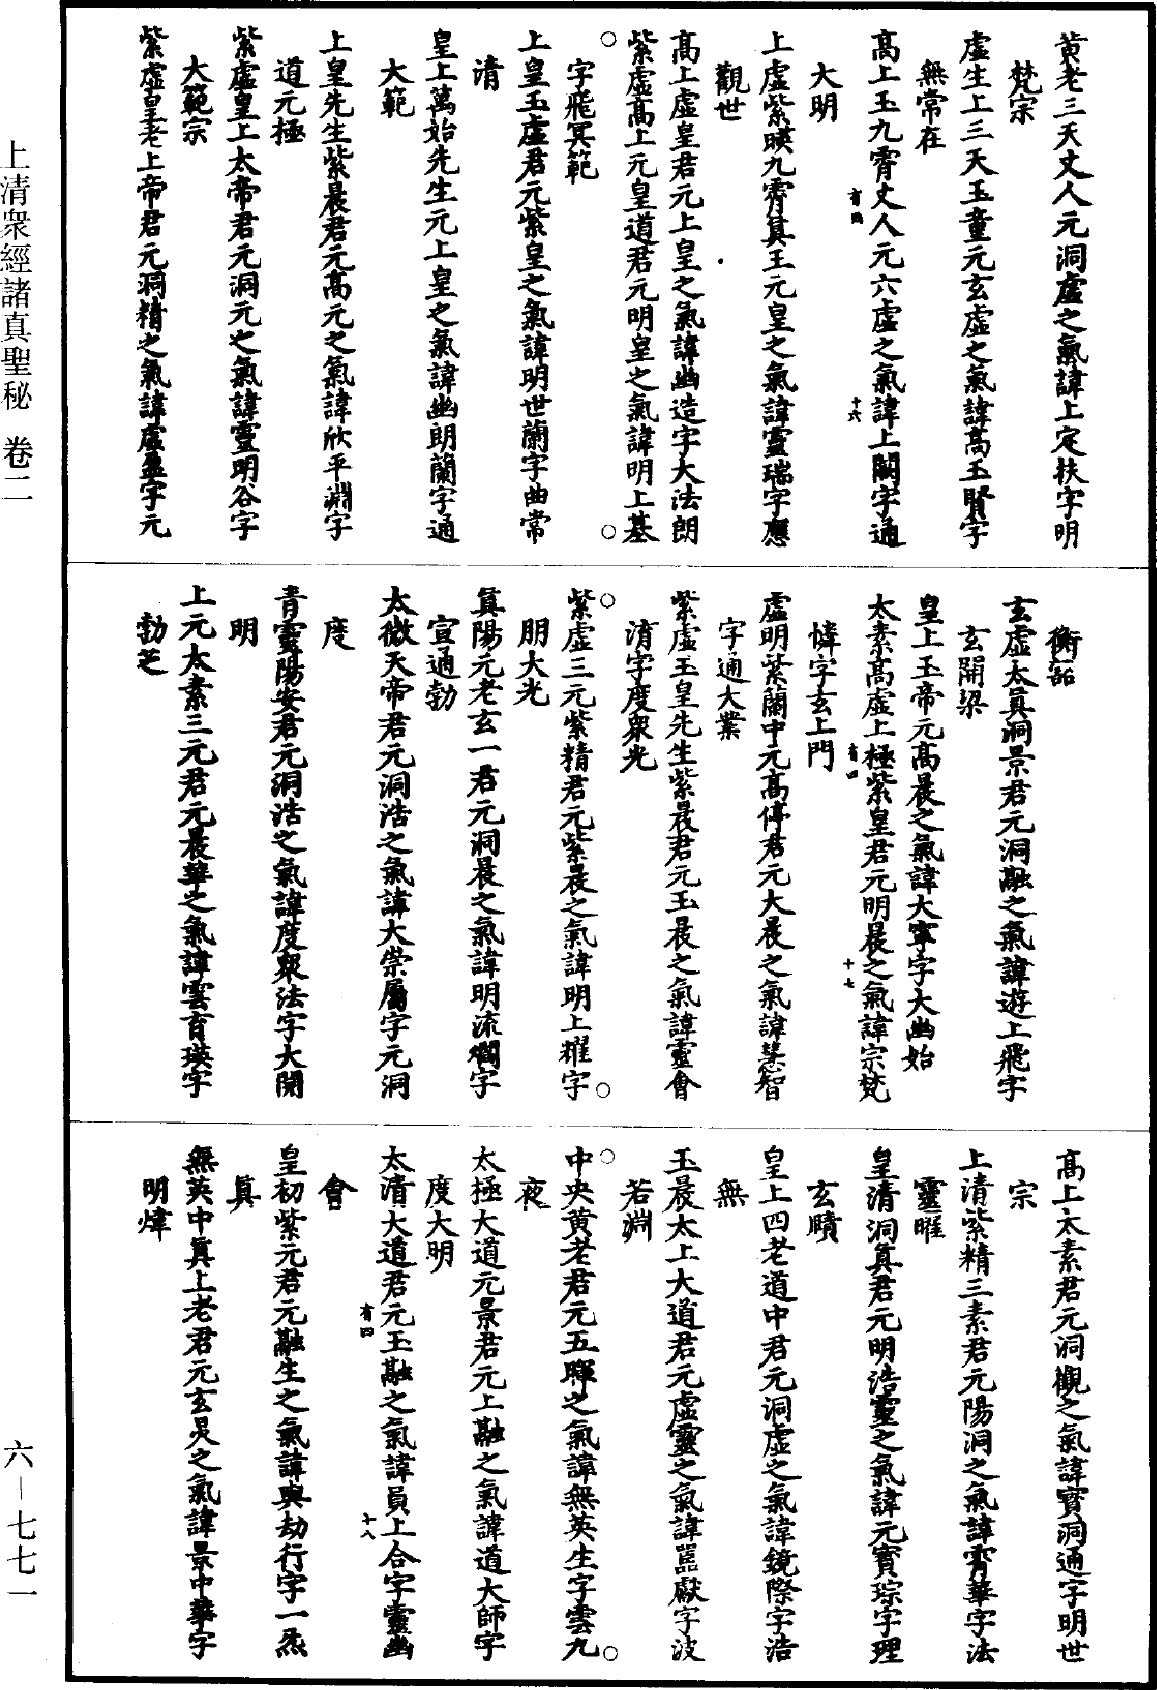 黃老三天丈人元洞虛之氣諱上定扶字明
梵宗
虛生上三天玉童元玄虛之氣諱高玉賢字
無常在
高上玉九霄丈人元六虛之氣諱上闕字通
有四 十六
大明
上虛紫暎九霄真王元皇之氣諱靈瑞字應
觀世
高上虛皇君元上皇之氣諱幽造字大法朗
紫虛高上元皇道君元明皇之氣諱明上基
字飛冥範
上皇玉虛君元紫皇之氣諱明世蘭字曲常
清
皇上萬始先生元上皇之氣諱幽朗蘭字通
大範
上皇先生紫晨君元高元之氣諱欣平淵字
道元極
紫虛皇上太帝君元洞元之氣諱靈明谷字
大範宗
紫虛皇老上帝君元洞精之氣諱虛盈字元
衡
玄虛太真洞景君元洞融之氣諱遊上飛字
玄開梁
皇上玉帝元高晨之氣諱大寧字大幽始
太素高虛上極紫皇君元明晨之氣諱宗梵
有四 十七
憐字玄上門
虛明紫蘭中元高停君元大晨之氣諱慧智
字通大業
紫虛玉皇先生紫晨君元玉晨之氣諱靈會
淯字度眾光
紫虛三元紫精君元紫晨之氣諱明上耀字
朋大光
真陽元老玄一君元洞晨之氣諱明流爛字
宣通勃
太微天帝君元洞浩之氣諱大崇屬字元洞
度
青靈陽安君元洞浩之氣諱度眾法字大開
明
上元太素三元君元晨華之氣諱雲育瑛字
勃芝
高上太素君元洞觀之氣諱寶洞通字明世
宗
上清紫精三素君元陽洞之氣諱霄華字法
靈曜
皇清洞真君元明浩靈之氣諱元寶琮字理
玄賾
皇上四老道中君元洞虛之氣諱鏡際字浩
無
玉晨太上大道君元虛靈之氣諱嚚獻字波
若淵
中央黃老君元五暉之氣諱無英生字雲九
夜
太極大道元景君元上融之氣諱道大師字
度大明
太清大道君元玉融之氣諱員上合字靈幽
有四 十八
會
皇初紫元君元融生之氣諱與劫行字一炁
真
無英中真上老君元玄炅之氣諱景中華字
明煒
上清眾經諸真聖秘 卷二
六－七七一